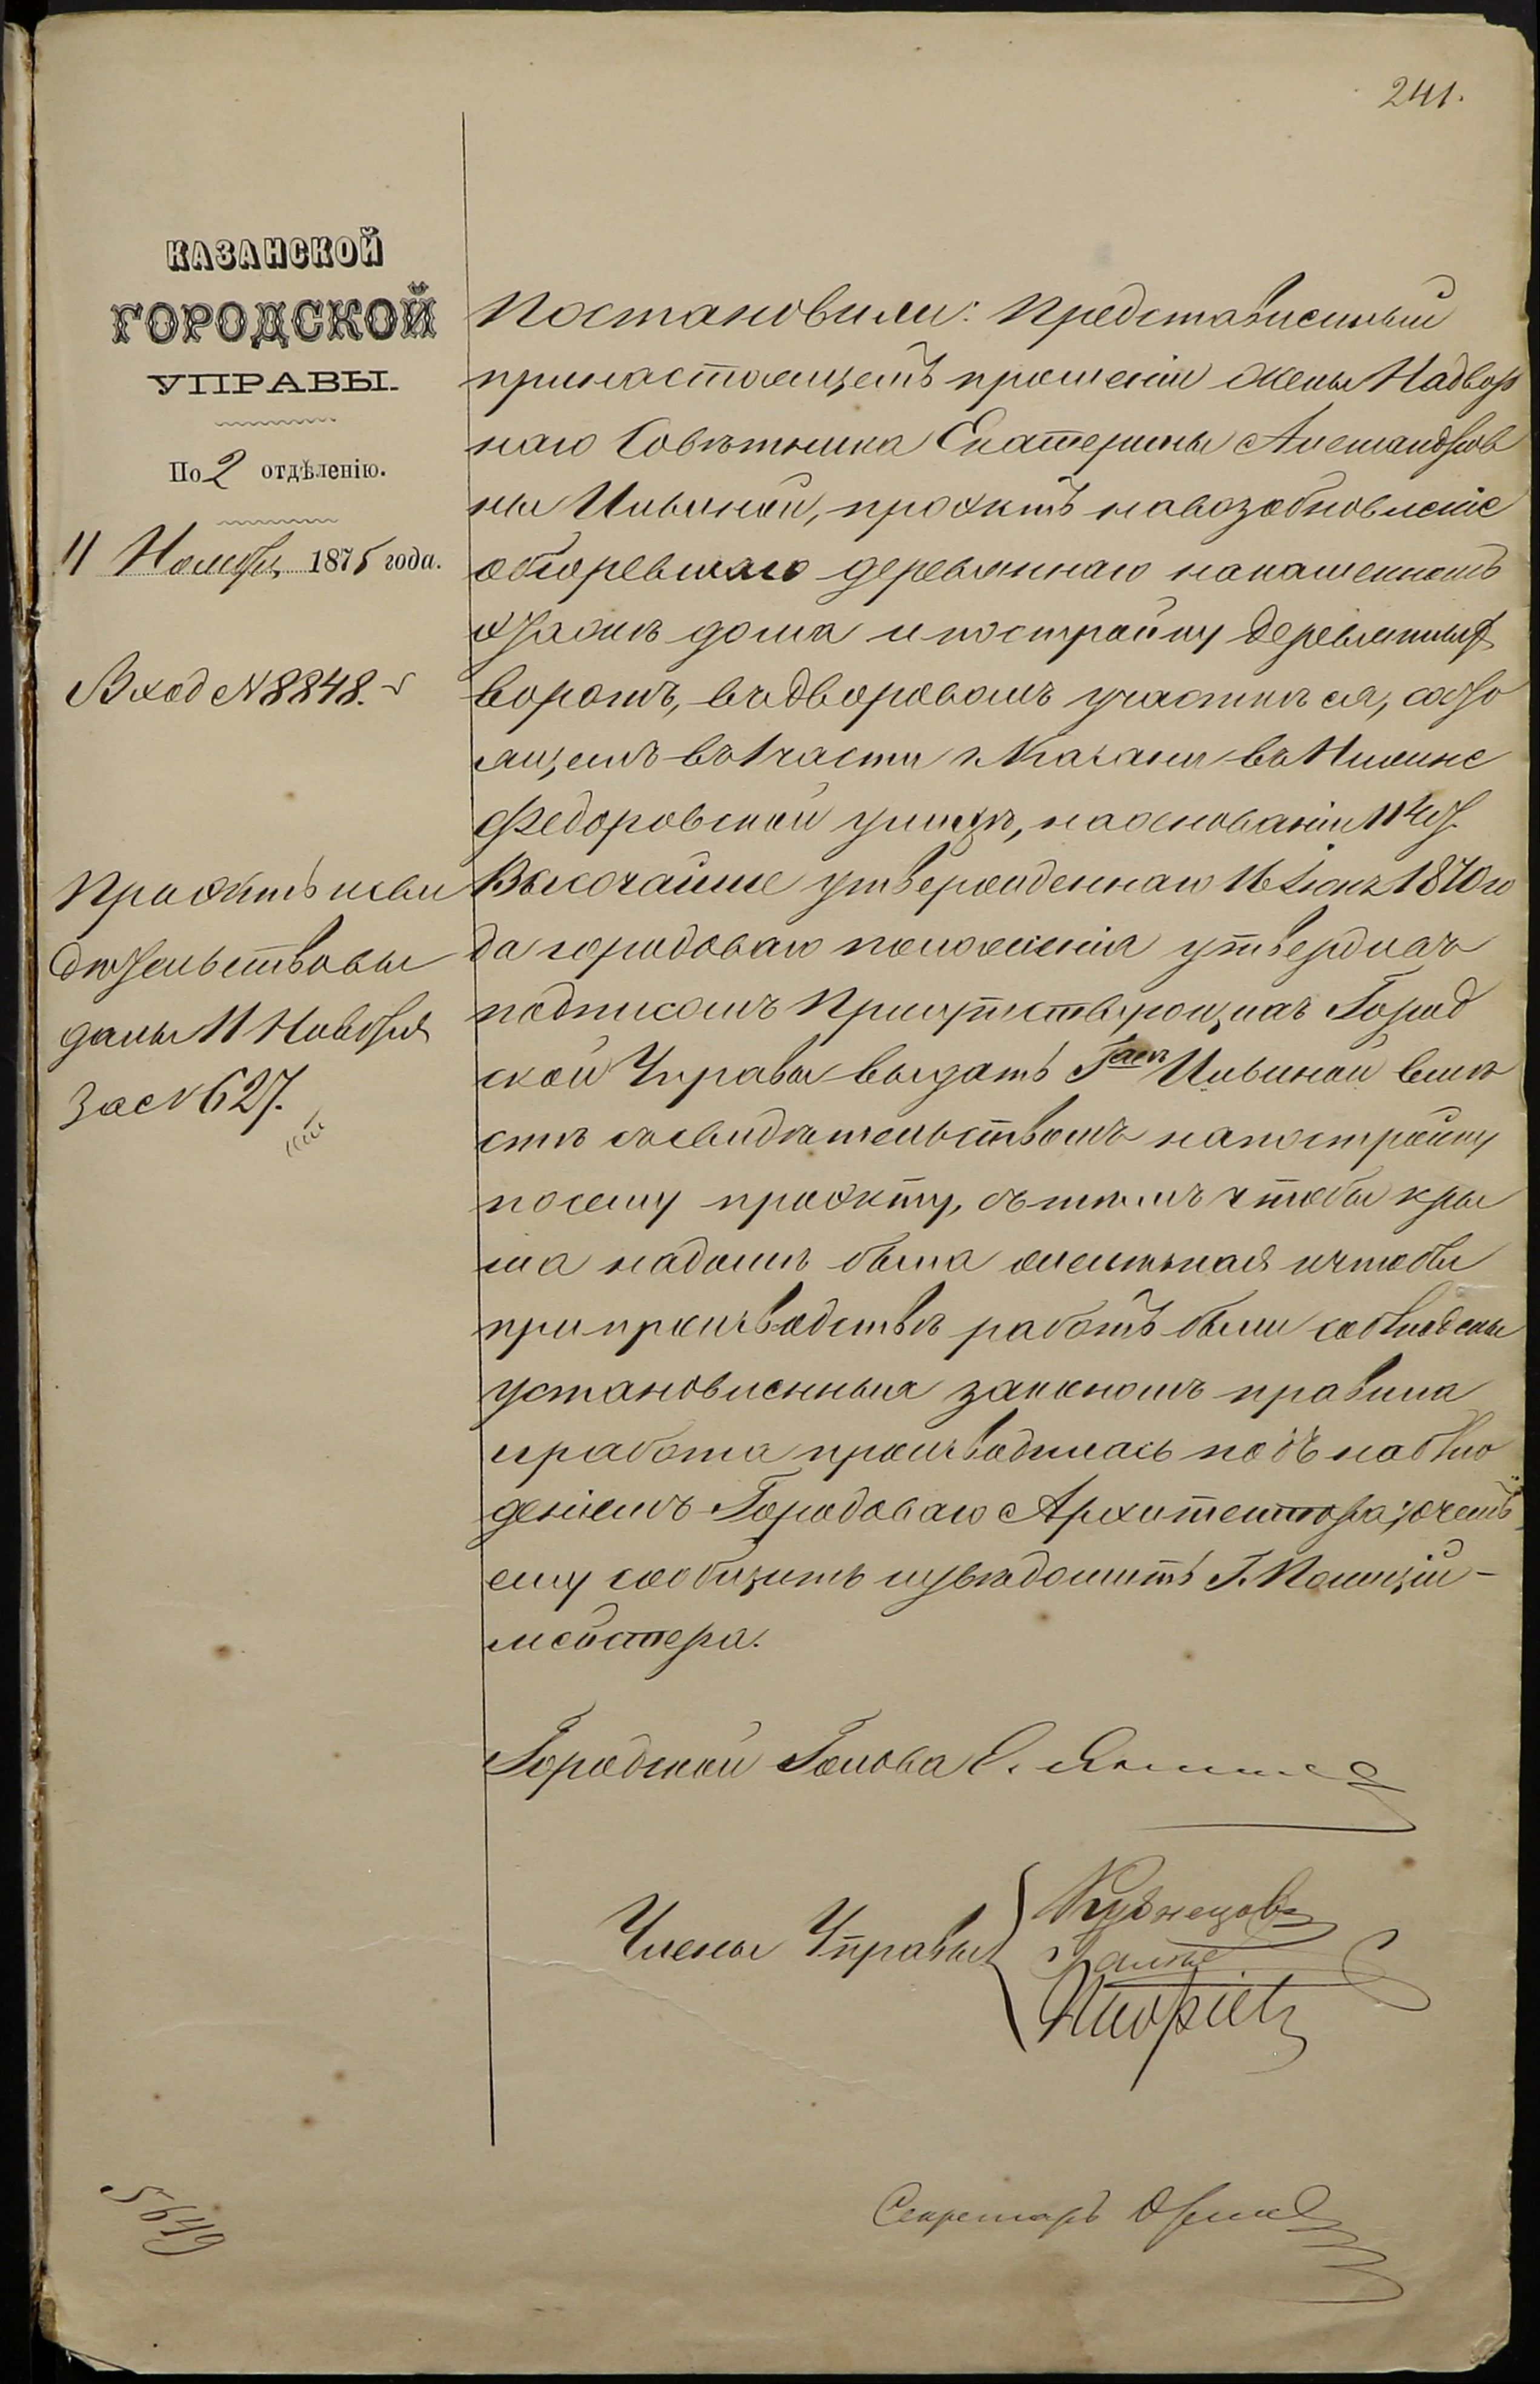 241.
КАЗАНСКОЙ
ГОРОДСКОЙ
УПРАВЫ.
По 2 отдѣленію.
11 Ноября 1875 года.
Вход № 8848.
Проэктъ и сви
дѣтельство вы
даны 11 Ноября
за № 627.
Постановили: Представленный
при настоящемъ прошеніи жены Надвор
наго Совѣтника Екатерины Александров
ны Ильиной, проэктъ на возобновленіе
обгоревшаго деревяннаго на каменномъ
этажѣ дома и постройку деревянныхъ
воротъ, въ дворовомъ участкѣ ея, состо
ящемъ въ 1 части г. Казани въ Нижне
Федоровской улицѣ, на основаніи 114 ст.
Высочайше утвержденнаго 16 Іюня 1870 го
да городоваго положенія утвердивъ
подписомъ Присутствующихъ Город
ской Управы выдать Г-жѣ Ильиной вмѣ
стѣ съ свидѣтельствомъ на постройку
по сему проэкту, съ тѣмъ чтобы кры
ша на домѣ была желѣзная и чтобы
при производствѣ работъ были соблюдены
установленныя закономъ правила
и работа производилась подъ наблю
деніемъ Городоваго Архитектора; о чемъ
ему сообщить и увѣдомить Г. Полиціи-
мейстера.
Городской Голова Е.
Члены Управы
Кузнецовъ
Секретарь
5649